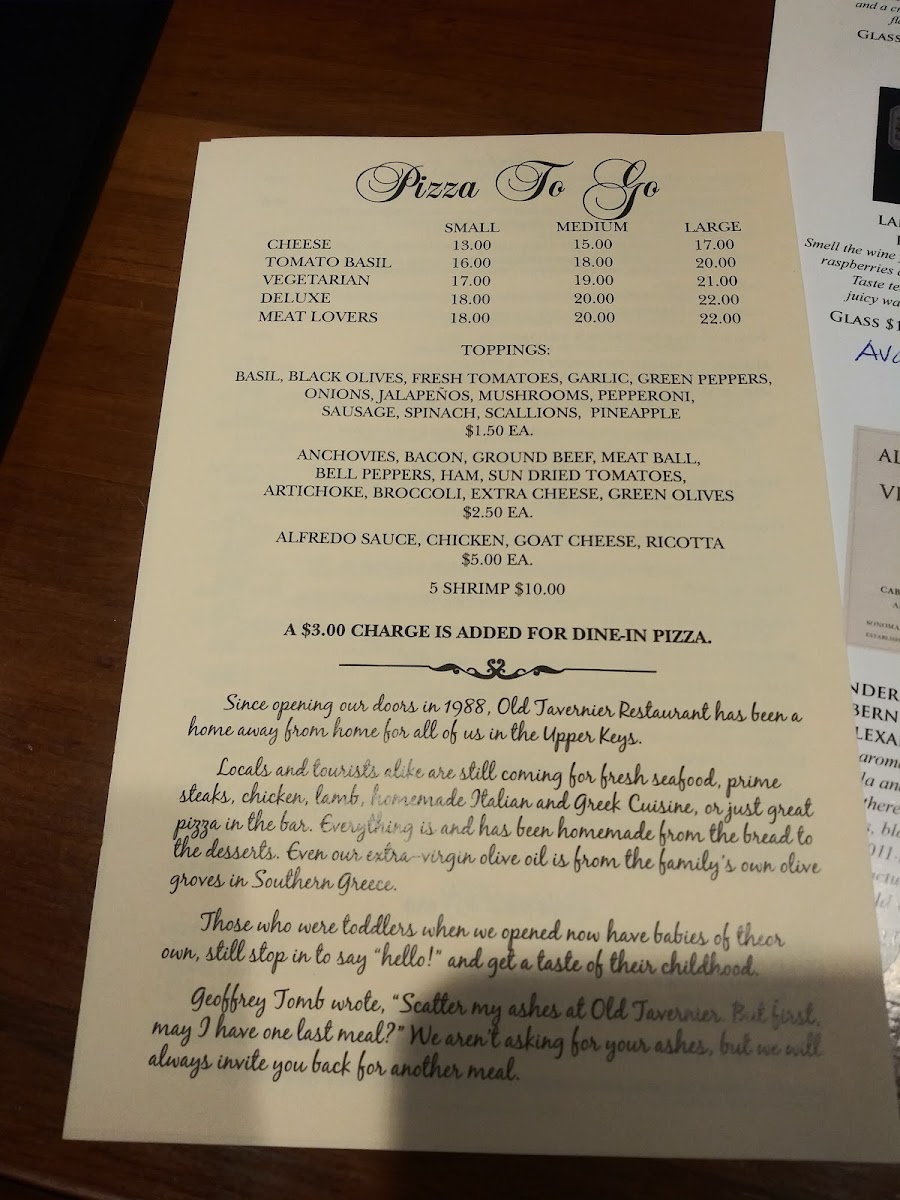 Pizza To Go
SMALL MEDIUM LARGE
CHEESE 13.00 15.00 17.00
TOMATO BASIL 16.00 18.00 20.00
VEGETARIAN 17.00 19.00 21.00
DELUXE 18.00 20.00 22.00
MEAT LOVERS 18.00 20.00 22.00
TOPPINGS:
BASIL, BLACK OLIVES, FRESH TOMATOES, GARLIC, GREEN PEPPERS,
ONIONS, JALAPEÑOS, MUSHROOMS, PEPPERONI,
SAUSAGE, SPINACH, SCALLIONS, PINEAPPLE
$1.50 EA.
ANCHOVIES, BACON, GROUND BEEF, MEAT BALL,
BELL PEPPERS, HAM, SUN DRIED TOMATOES,
ARTICHOKE, BROCCOLI, EXTRA CHEESE, GREEN OLIVES
$2.50 EA.
ALFREDO SAUCE, CHICKEN, GOAT CHEESE, RICOTTA
$5.00 EA.
5 SHRIMP $10.00
A $3.00 CHARGE IS ADDED FOR DINE-IN PIZZA.
Since opening our doors in 1988, Old Tavernier Restaurant has been a
home away from home for all of us in the Upper Keys.
Locals and tourists alike are still coming for fresh seafood, prime
steaks, chicken, lamb, homemade Italian and Greek Cuisine, or just great
pizza in the bar. Everything is and has been homemade from the bread to
the desserts. Even our extra-virgin olive oil is from the family's own olive
groves in Southern Greece.
Those who were toddlers when we opened now have babies of theor
own, still stop in to say "hello!" and get a taste of their childhood.
Geoffrey Tomb wrote, "Scatter my ashes at Old Tavernier. But first,
may I have one last meal?" We aren't asking for your ashes, but we will
always invite you back for another meal.
and a
GLASS
Smell the wine
raspberries
Taste
juicy
GLASS